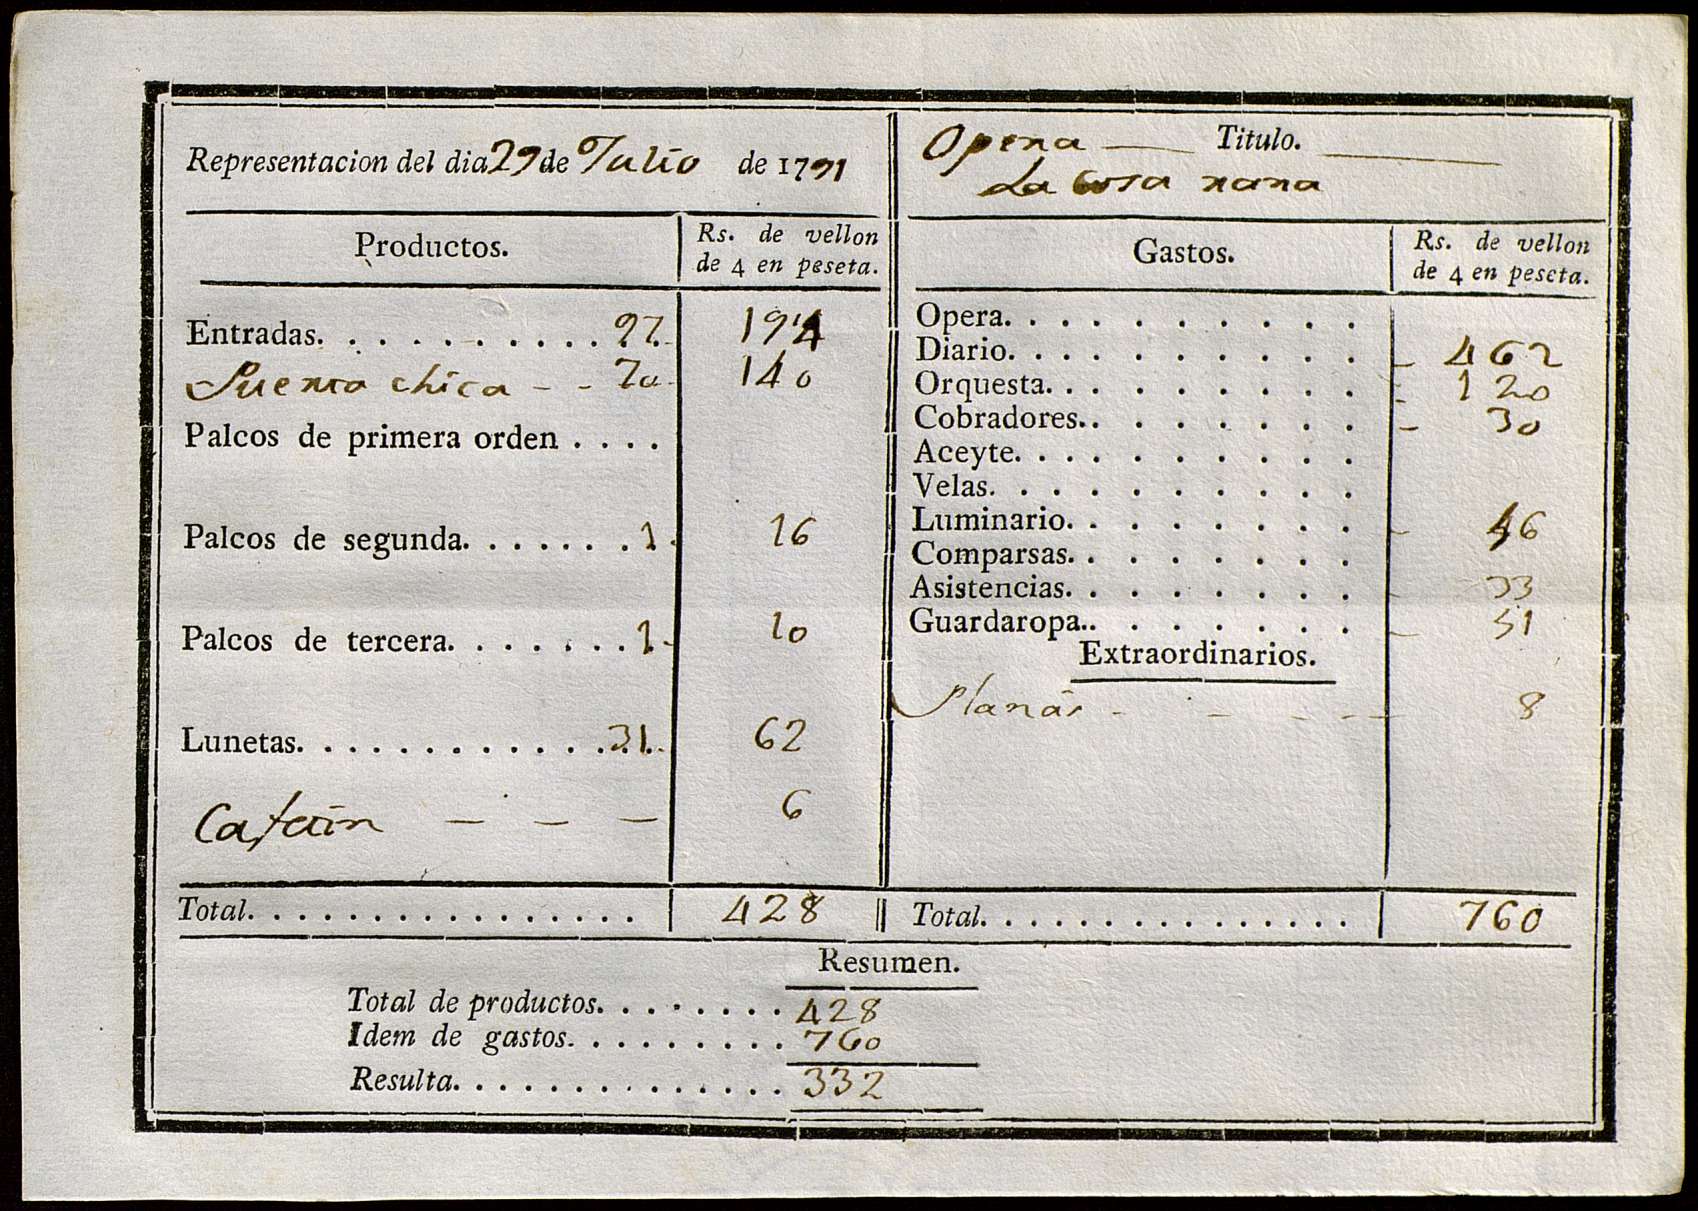 Representacion del dia 29 de Julio de 1791
Opera Titulo.
La cosa rara
Productos.
Rs. de vellon
de 4 en peseta.
Entradas. . . . . . . . . . . 97. 194
Puerta chica - - 70 140
Palcos de primera orden . . . .
Palcos de segunda. . . . . . . 1. 16
Palcos de tercera. . . . . . . 1 10
Lunetas. . . . . . . . . . . . . 31. 62
— — — 6
Total. . . . . . . . . . . . . . . . . 428
Gastos.
Rs. de vellon
de 4 en peseta.
Opera. . . . . . . . . . .
Diario. . . . . . . . . . . 462
Orquesta. . . . . . . . . . 120
Cobradores. . . . . . . . 30
Aceyte. . . . . . . . . . .
Velas. . . . . . . . . . .
Luminario. . . . . . . . 56
Comparsas. . . . . . . .
Asistencias. . . . . . . . 33
Guardaropa. . . . . . . . 51
Extraordinarios.
- - - - 8
Total. . . . . . . . . . . . . . . . 760
Resumen.
Total de productos. . . . . . . . 428
Idem de gastos. . . . . . . . . 760
Resulta. . . . . . . . . . . . . . 332